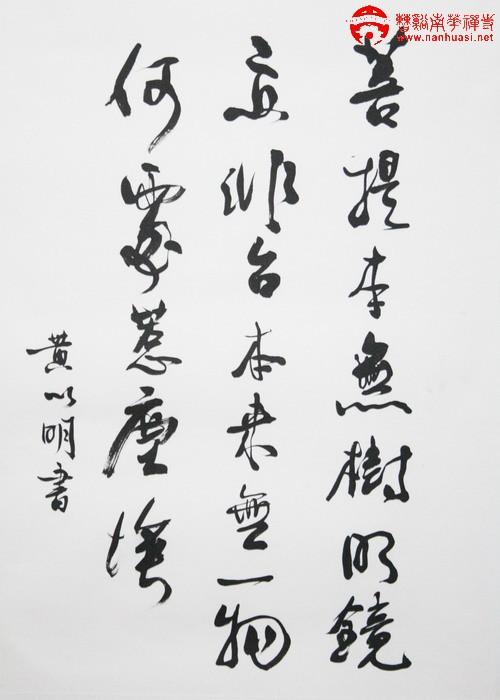 曹谿南華禪寺
www.nanhuasi.net
菩提本無樹明鏡
亦非台本来無一物
何處惹塵埃
黄以明書